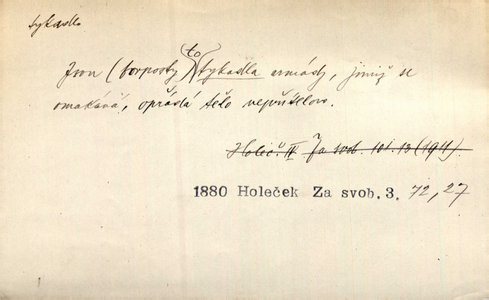 tykadlo
Jsou (forposty) to tykadla armády, jimiž se
omakává, opřádá tělo nepřítelovo.
Holeč. IV Za svob. 101.13 (1911).
1880 Holeček Za svob. 3. 72, 27